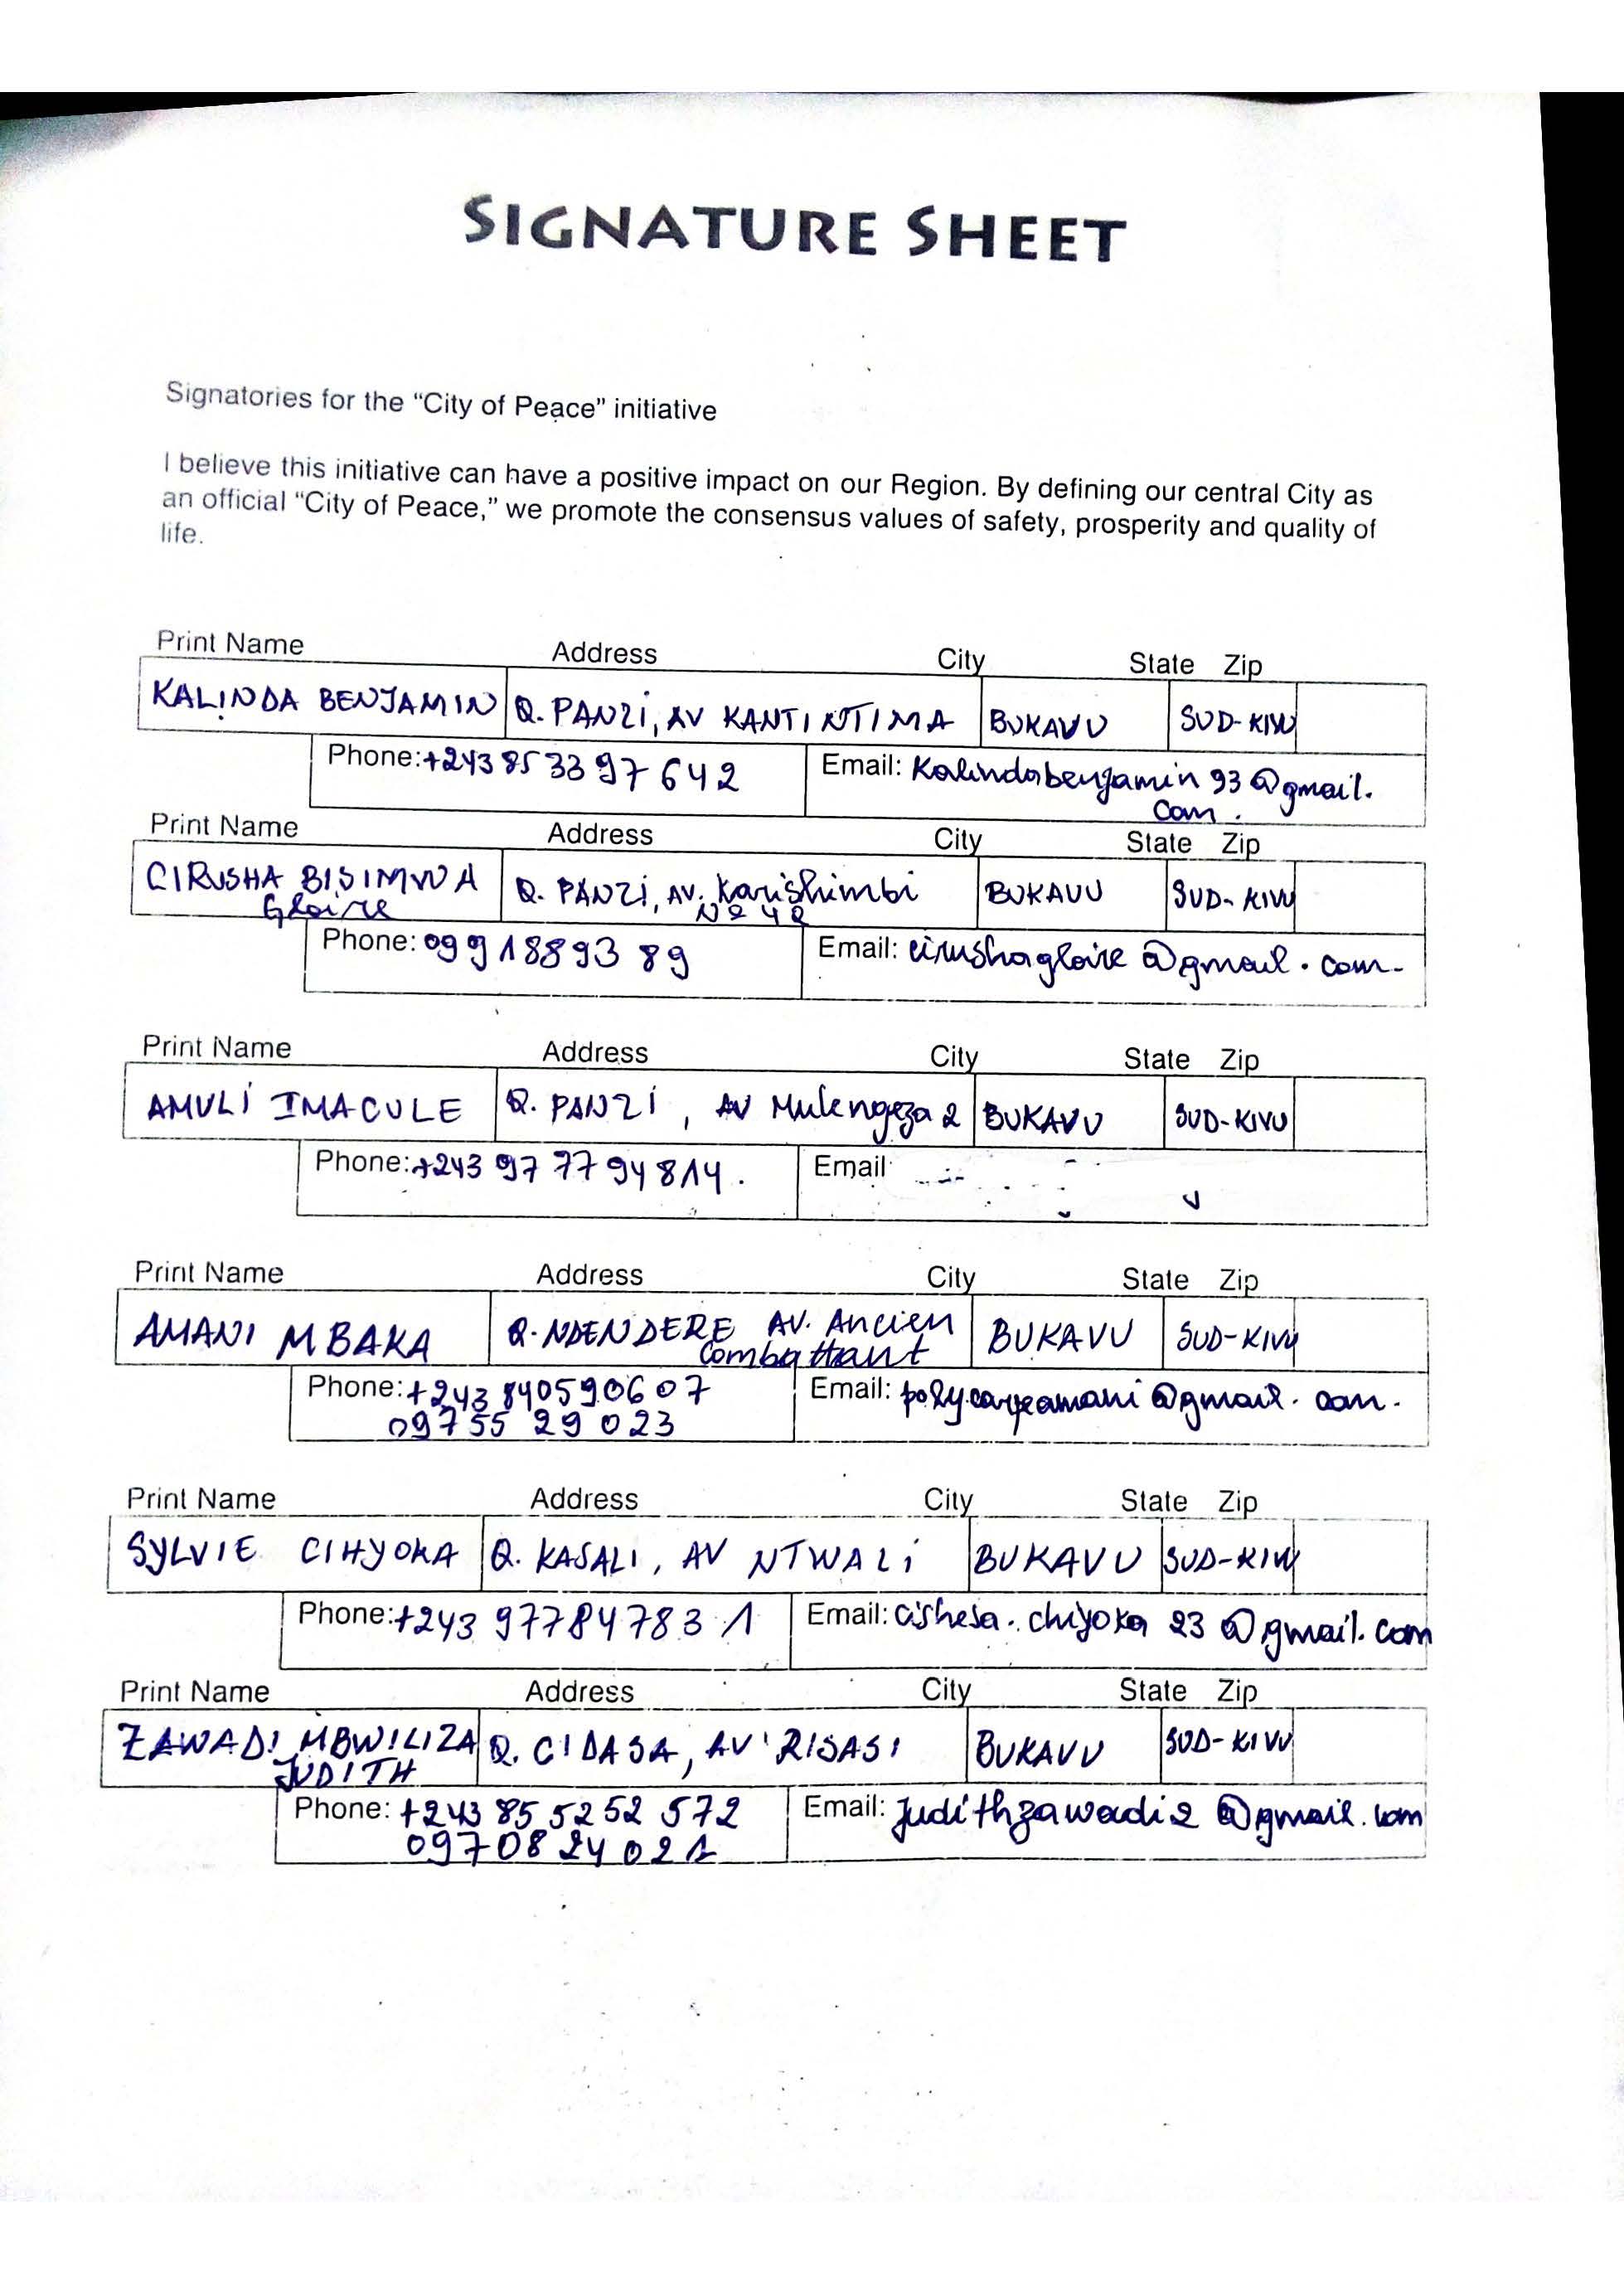 SIGNATURE SHEET
Signatories for the “City of Peace” initiative
I believe this initiative can have a positive impact on our Region. By defining our central City as
an official “City of Peace,” we promote the consensus values of safety, prosperity and quality of
life.
Print Name Address City State Zip
KALINDA BENJAMIN Q. PANZI, AV KANTINTIMA BUKAVU SUD-KIVU
Phone: +243 853397642 Email: Kalindabenjamin93@gmail.
com.
Print Name Address City State Zip
CIRUSHA BISIMWA Q. PANZI, AV. Karishimbi BUKAVU SUD-KIVU
Gloire Nº 42
Phone: 0991889389 Email: cirushagloire@gmail.com-
Print Name Address City State Zip
AMULI IMACULE Q. PANZI, AV Mulengeza 2 BUKAVU SUD-KIVU
Phone: +243 977794814. Email
Print Name Address City State Zip
AMANI MBAKA Q. NDENDERE AV. Ancien BUKAVU SUD-KIVU
Combattant
Phone: +243 840590607 Email: polycarpeamani@gmail.com.
0975529023
Print Name Address City State Zip
SYLVIE CIHYOKA Q. KASALI, AV NTWALI BUKAVU SUD-KIVU
Phone: +243 977847831 Email: cishesa.chiyoka23@gmail.com
Print Name Address City State Zip
ZAWADI MBWILIZA Q. CIDASA, AV RISASI BUKAVU SUD-KIVU
JUDITH
Phone: +243 855252572 Email: Judithzawadi2@gmail.com
0970824021